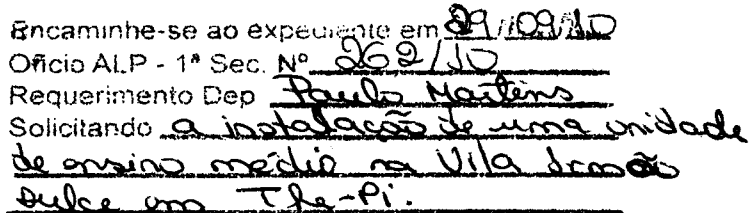 Encaminhe-se ao expediente em 29/09/10
Ofício ALP - 1ª Sec. Nº 262/10
Requerimento Dep Paulo Martins
Solicitando a instalação de uma unidade
de ensino médio na Vila Irmão
Dulce em The-Pi.